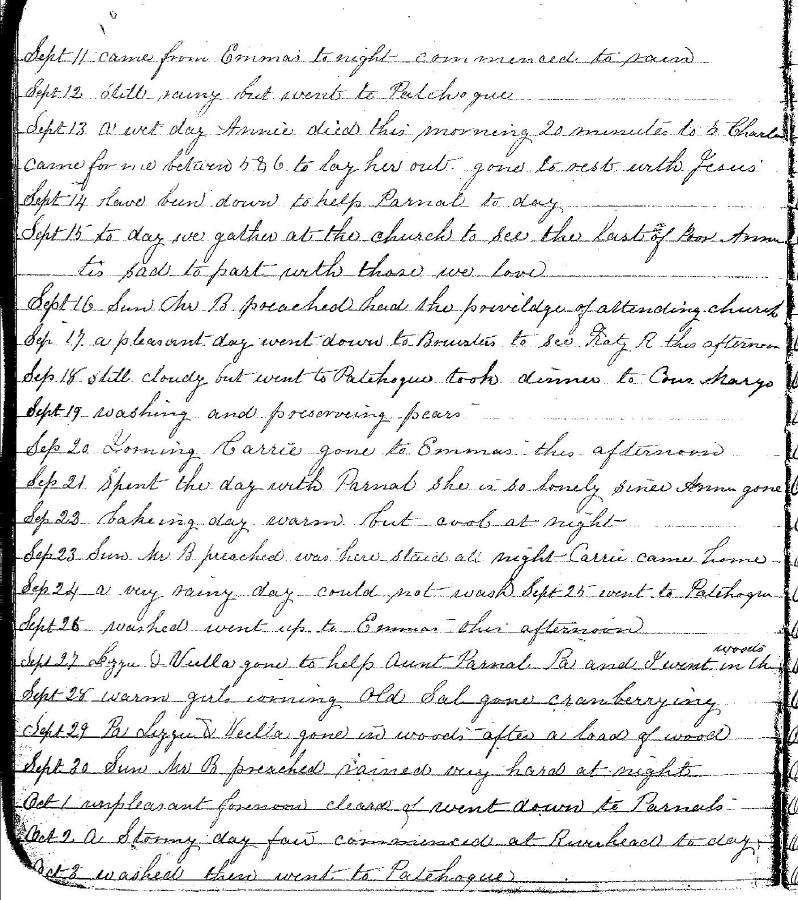 Sept 11 came from Emmas to night commenced to rain
Sept 12 still rainy but went to Patchogue
Sept 13 a wet day Annie died this morning 20 minutes to 5 Charles
came for me betwen 5 & 6 to lay her out. gone to rest with Jesus
Sept 14 have been down to help Parnal to day
Sept 15 to day we gather at the church to see the last of Poor Annie
tis sad to part with those we love
Sept 16 Sun Mr B preached had the privildge of attending church
Sep 17 a pleasant day went down to to see Katy R this afternoon
Sep 18 still cloudy but went to Patchogue took dinner to Cous Marys
Sept 19 washing and preserveing pears
Sep 20 Ironing Carrie gone to Emmas this afternoon
Sep 21 Spent the day with Parnal she is so lonely since Annie gone
Sep 22 bakeing day warm but cool at night
Sep 23 Sun Mr B preached was here staid all night Carrie came home
Sep 24 a very rainy day could not wash Sept 25 went to Patchogue
Sept 26 washed went up to Emmas this afternoon
Sept 27 Lizzie & Viella gone to help Aunt Parnal Pa and I went in th woods
Sept 28 warm girls ironing Old Sal gone cranberrying
Sept 29 Pa Lizzie & Viella gone in woods after a load of wood
Sept 30 Sun Mr B preached rained very hard at night
Oct 1 unpleasant forenoon cleard of went down to Parnals
Oct 2 A Stormy day fair commenced at Riverhead to day
Oct 3 washed then went to Patchogue